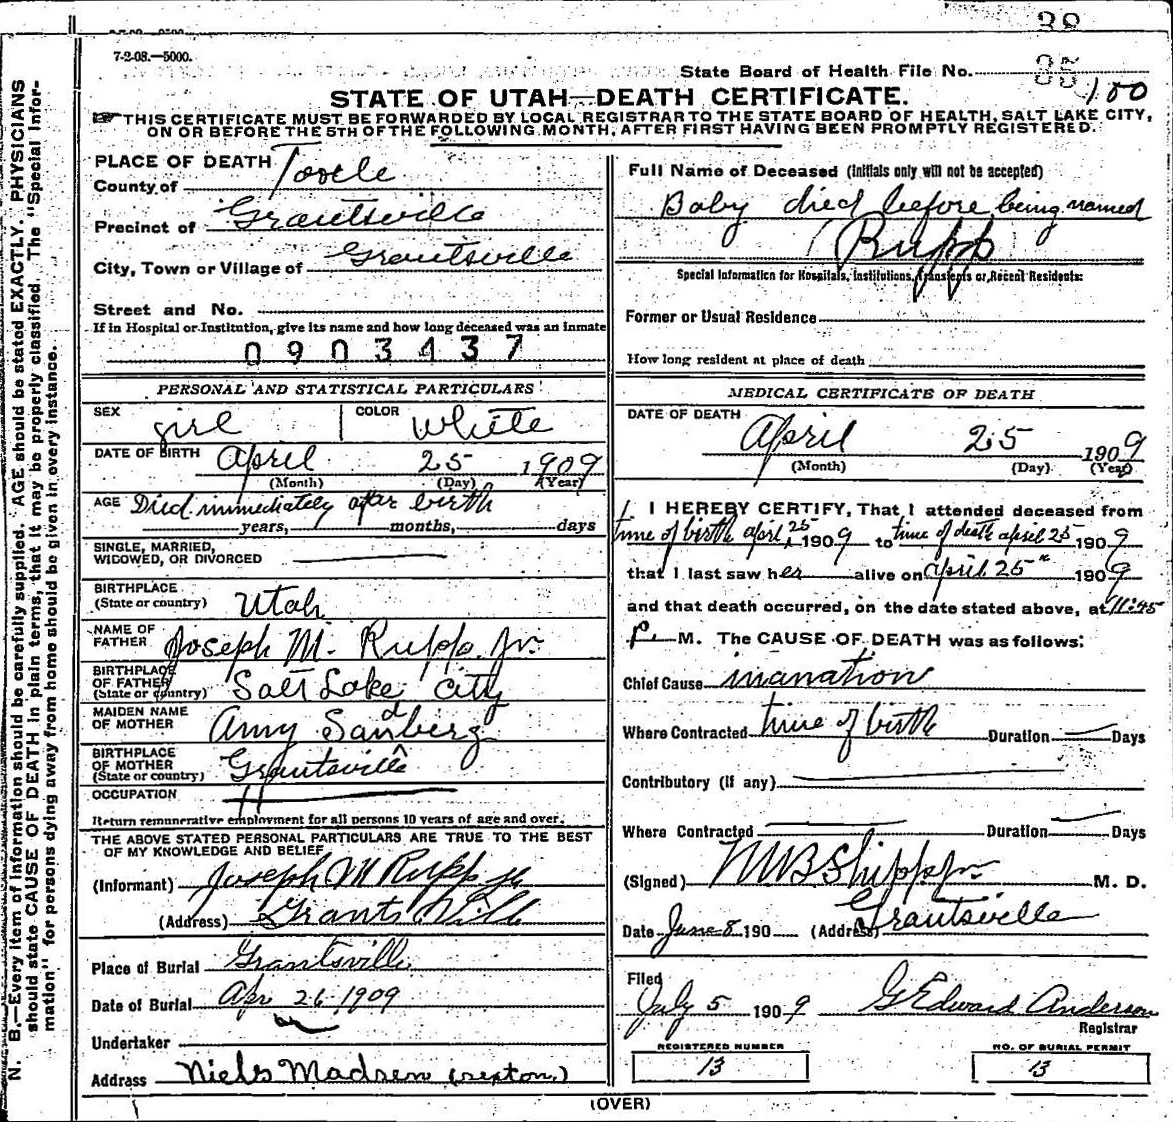 38
7-2-08.—5000.
State Board of Health File No. 35
100
STATE OF UTAH—DEATH CERTIFICATE.
THIS CERTIFICATE MUST BE FORWARDED BY LOCAL REGISTRAR TO THE STATE BOARD OF HEALTH, SALT LAKE CITY,
ON OR BEFORE THE 5TH OF THE FOLLOWING MONTH, AFTER FIRST HAVING BEEN PROMPTLY REGISTERED.
N. B.—Every item of information should be carefully supplied. AGE should be stated EXACTLY. PHYSICIANS
should state CAUSE OF DEATH in plain terms, that it may be properly classified. The "Special Infor-
mation" for persons dying away from home should be given in every instance.
PLACE OF DEATH
County of Tooele
Precinct of Grantsville
City, Town or Village of Grantsville
Street and No.
If in Hospital or Institution, give its name and how long deceased was an inmate
0903437
PERSONAL AND STATISTICAL PARTICULARS
SEX girl COLOR White
DATE OF BIRTH April 25 1909
(Month) (Day) (Year)
AGE Died immediately after birth
years, months, days
SINGLE, MARRIED,
WIDOWED, OR DIVORCED
BIRTHPLACE
(State or country) Utah
NAME OF
FATHER Joseph M. Rupp Jr.
BIRTHPLACE
OF FATHER
(State or country) Salt Lake City
MAIDEN NAME
OF MOTHER Amy Sandberg
BIRTHPLACE
OF MOTHER
(State or country) Grantsville
OCCUPATION
Return remunerative employment for all persons 10 years of age and over.
THE ABOVE STATED PERSONAL PARTICULARS ARE TRUE TO THE BEST
OF MY KNOWLEDGE AND BELIEF
(Informant) Joseph M Rupp Jr
(Address) Grantsville
Place of Burial Grantsville
Date of Burial Apr 26 1909
Undertaker
Address Niels Madsen (sexton.)
Full Name of Deceased (Initials only will not be accepted)
Baby died before being named
(Rupp
Special Information for Hospitals, Institutions, Transients or Recent Residents:
Former or Usual Residence
How long resident at place of death
MEDICAL CERTIFICATE OF DEATH
DATE OF DEATH
April 25 1909
(Month) (Day) (Year)
I HEREBY CERTIFY, That I attended deceased from
time of birth April 25 1909 to time of death april 25 1909
that I last saw her alive on april 25" 1909
and that death occurred, on the date stated above, at 11:45
P. M. The CAUSE OF DEATH was as follows:
Chief Cause inanation
Where Contracted time of birth Duration Days
Contributory (if any)
Where Contracted Duration Days
(Signed) M B Shipp Jr. M. D.
Date June 8 190 (Address) Grantsville
Filed
July 5 1909 G Edward Anderson
Registrar
REGISTERED NUMBER
13
NO. OF BURIAL PERMIT
13
(OVER)